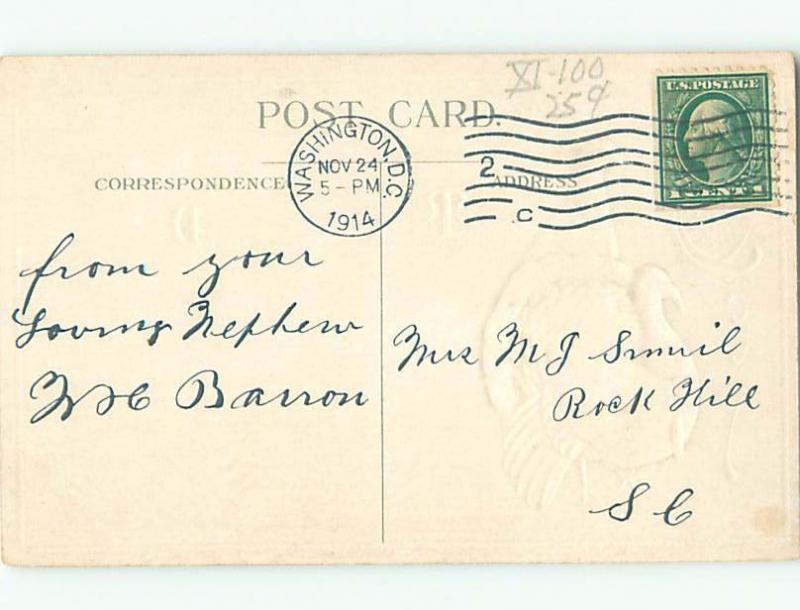 XI-100
25¢
POST CARD.
U.S. POSTAGE
1 CENT 1
WASHINGTON, D.C.
NOV 24
5 - PM
1914
2
C
CORRESPONDENCE
ADDRESS
from your
Loving Nephew
W H Barron
Mrs M J
Rock Hill
S C